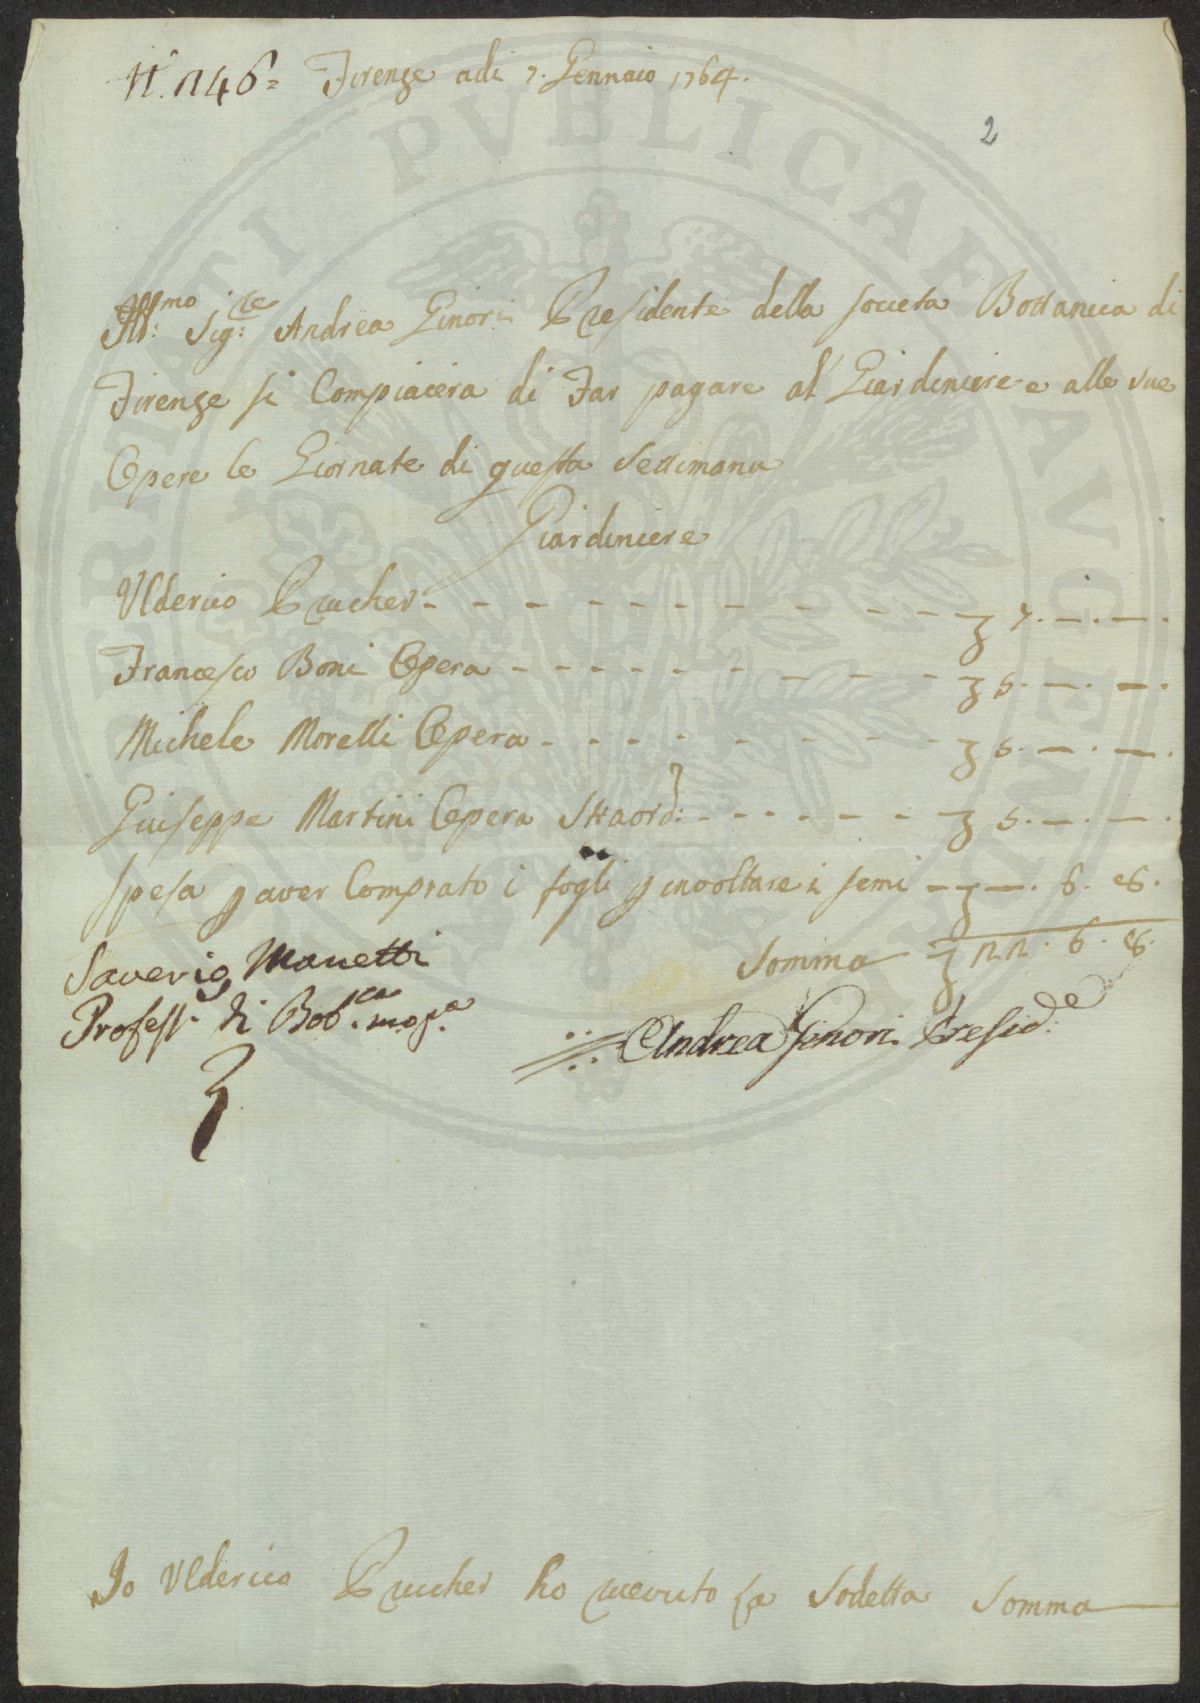 N.° 146= Firenze adi 7. Gennaio 1764.
2
Ill:mo Sig:re Andrea Ginori Presidente della Societa Bottanica di
Firenze si Compiacera di Far pagare al Giardiniere e alle sue
Opere le Giornate di questa Settimana
Giardiniere
Ulderico Prucher - - - - - - - - - - 7. —. —.
Francesco Boni Opera - - - - - - - - 5. —. —.
Michele Morelli Opera - - - - - - - - 5. —. —.
Guiseppe Martini Opera Straord: - - - - - - 5. —. —.
Spesa p aver Comprato i fogli p involtare i semi — —. 6. 8.
Somma 22. 6. 8.
Saverio Manetti
Profess.re di Bot.ca
Andrea Ginori Presid:e
Io Ulderico Prucher ho ricevuto la Sodetta Somma
PVBLICAE